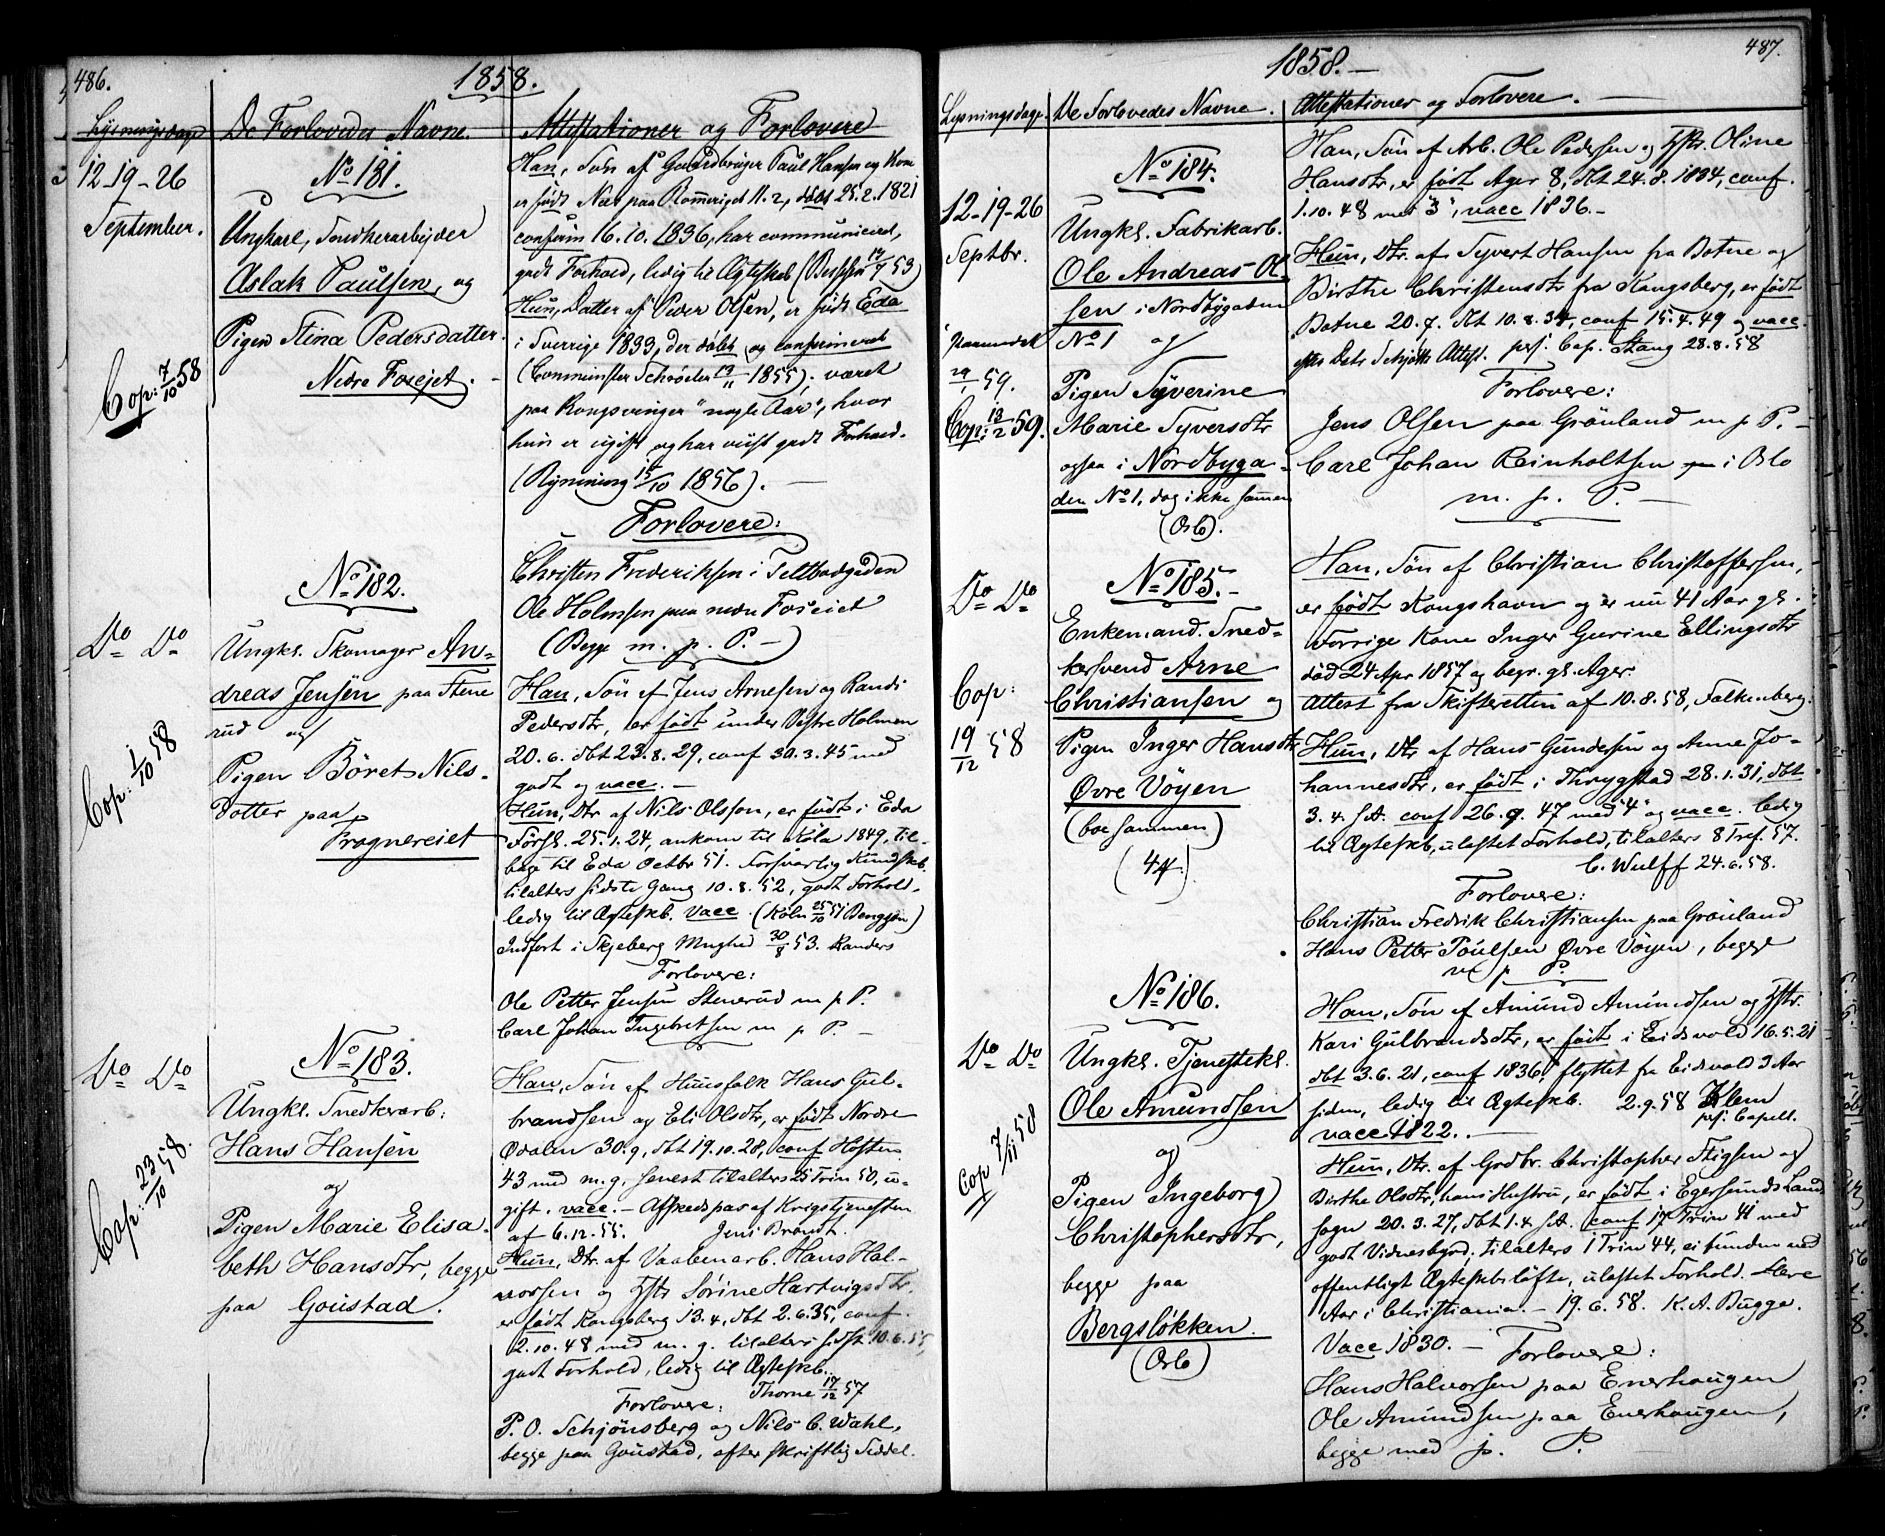 486.
1858.
Lysningsdage
De Forlovedes Navne.
Attestationer og Forlovere
12-19-26
September.
Cop: 7/10 58
No 181.
Ungkarl, Snedkerarbejder
Aslak Paulsen, og
Pigen Stina Pedersdatter.
Nedre Foseiet.
Han, Søn af Gaardbruger Paul Hansen og Kone
er født Næs paa Romerige 11.2, døbt 25.2.1821
confirm 16.10.1836, har communiceret,
godt Forhold, ledig til Ægteskab
Hun, Datter af Peder Olsen, er født Eda
i Sverrige 1833, der døbt og confirmeret
(Comminister Schrøder 19/11 1855); været
paa Kongsvinger "nogle Aar", hvor
hun er ugift og har viist godt Forhold.
(Rynning 15/10 1856).
Forlovere:
Christen Frederiksen i Teltbodgaden
Ole Holmsen paa nedre Foseiet
(Begge m. p. P. -
Do Do
Cop: 1/10 58
No 182.
Ungkl. Skomager An-
dreas Jensen paa Stene
rud og
Pigen Böret Nils-
dotter paa
Frognereiet
Han, Søn af Jens Arnesen og Randi
Pedersdtr, er født under Vestre Holmen
20.6. dbt 23.8.29, conf 30.3.45 med
godt og vacc. -
Hun, Dtr af Nils Olsson, er født i Eda
Førsl. 25.1.24, ankom til Köla 1849, til-
bage til Eda Octbr 51. Forsvarlig Kundskb.
tilalters sidste Gang 10.8.52, godt Forhold.
ledig til Ægteskb. Vacc. (Köln 25/10 51 Bengzon)
Indført i Skjeberg Mnghed 30/8 53. Randers
Forlovere:
Ole Petter Jensen Stenerud m p P.
Carl Johan Ingebretsen m p P. -
Do Do
Cop: 23/10 58.
No 183.
Ungkl. Snedkerarb:
Hans Hansen
og
Pigen Marie Elisa
beth Hansdtr, begge
paa Goustad.
Han, Søn af Huusfolk Hans Gul-
brandsen og Eli Olsdtr, er født Nordre
Odalen 30.9, dbt 19.10.28, conf Høsten
43 med m.g, senest tilalters 25 Trin 50, u-
gift. vacc. - Afskedspas af Krigstjenesten
af 6.12.55. Jens Brandt.
Hun, Dtr. af Vaabenarb. Hans Hal-
vorsen og Hstr Sørine Hartvigsdtr.
er født Kongsberg 13.4, dbt 2.6.35, conf.
2.10.48 med m.g. tilalters sidst 10.6.55,
godt Forhold, ledig til Ægteskb.
Thorne 17/12 57
Forlovere:
P. O. Schjønsberg og Nils C. Wahl,
begge paa Goustad, efter skriftlig Seddel.
487.
1858. -
Lysningsdage.
De Forlovedes Navne.
Attestationer og Forlovere. -
12-19-26
Septbr.
29/1 59.
Cop: 13/2 59.
No 184.
Ungkl. Fabrikarb.
Ole Andreas Ol-
sen i Nordbygaden
No 1 og
Pigen Syverine
Marie Syversdtr
ogsaa i Nordbyga-
den No 1, dog ikke sammen
(Oslo).
Han, Søn af Arb. Ole Pedersen og Hstr. Oline
Hansdtr, er født Ager 8, dbt 24.8.1834, conf.
1.10.48 med "3", vacc 1836. -
Hun, Dtr. af Syvert Hansen fra Botne og
Birthe Christensdtr fra Kongsberg, er født
Botne 20.7. dbt 10.8.34, conf 15.4.49 og vacc.
efter Dets Schjøtts Attest. pers. Cap. Stang 28.8.58
Forlovere:
Jens Olsen paa Grønland m p P. -
Carl Johan Reinholtsen i Oslo
m. p. P. -
Do Do
Cop:
19/12 58
No 185. -
Enkemand. Sned-
kersvend Arne
Christiansen og
Pigen Inger Hansdtr
Øvre Vøyen
(boe sammen)
(44.)
Han, Søn af Christian Christoffersen,
er født Kongshavn og er nu 41 Aar gl.
Forrige Kone Inger Gurine Ellingsdtr
död 24 Apr 1857 og begr. gl. Ager.
Attest fra Skifteretten af 10.8.58, Falkenberg.
Hun, Dtr af Hans Gundesen og Anne Jo-
hannesdtr, er født i Thrygstad 28.1.31, dbt
3.4. s.A. conf 26.9.47 med "4" og vacc. ledig
til Ægteskb, ulastet Forhold, tilalters 8 Tref. 57.
C. Wulff 24.6.58.
Forlovere:
Christian Fredrik Christiansen paa Grønland
Hans Petter Poulsen Øvre Vøyen, begge
m p P.
Do Do
Cop 7/11 58
No 186.
Ungkl. Tjenestekl.
Ole Amundsen
og
Pigen Ingeborg
Christophersdtr,
begge paa
Bergsløkken.
(Oslo)
Han, Søn af Amund Amundsen og Hstr.
Kari Gulbrandsdtr, er født i Eidsvold 16.5.21
dbt 3.6.21, conf 1836, flyttet fra Eidsvold 3 Aar
siden, ledig til Ægteskb. 2.9.58 Klem
pers. Capell.
vacc 1822. -
Hun, Dtr. af Grdbr. Christopher Stigsen og
Birthe Olsdtr, hans Hustru, er født i Egersunds Land
sogn 20.3.27, dbt 1.4 s.A. conf 17 Trin 41 med
godt Vidnesbyrd. tilalters 1 Trin 44, ei bunden ved
offentligt Ægteskbsløfte, ulastet Forhold. Flere
Aar i Christiania. - 19.6.58. K. A. Bugge.
Vacc 1830. - Forlovere:
Hans Halvorsen paa Enerhaugen
Ole Amundsen paa Enerhaugen,
begge med p. P.